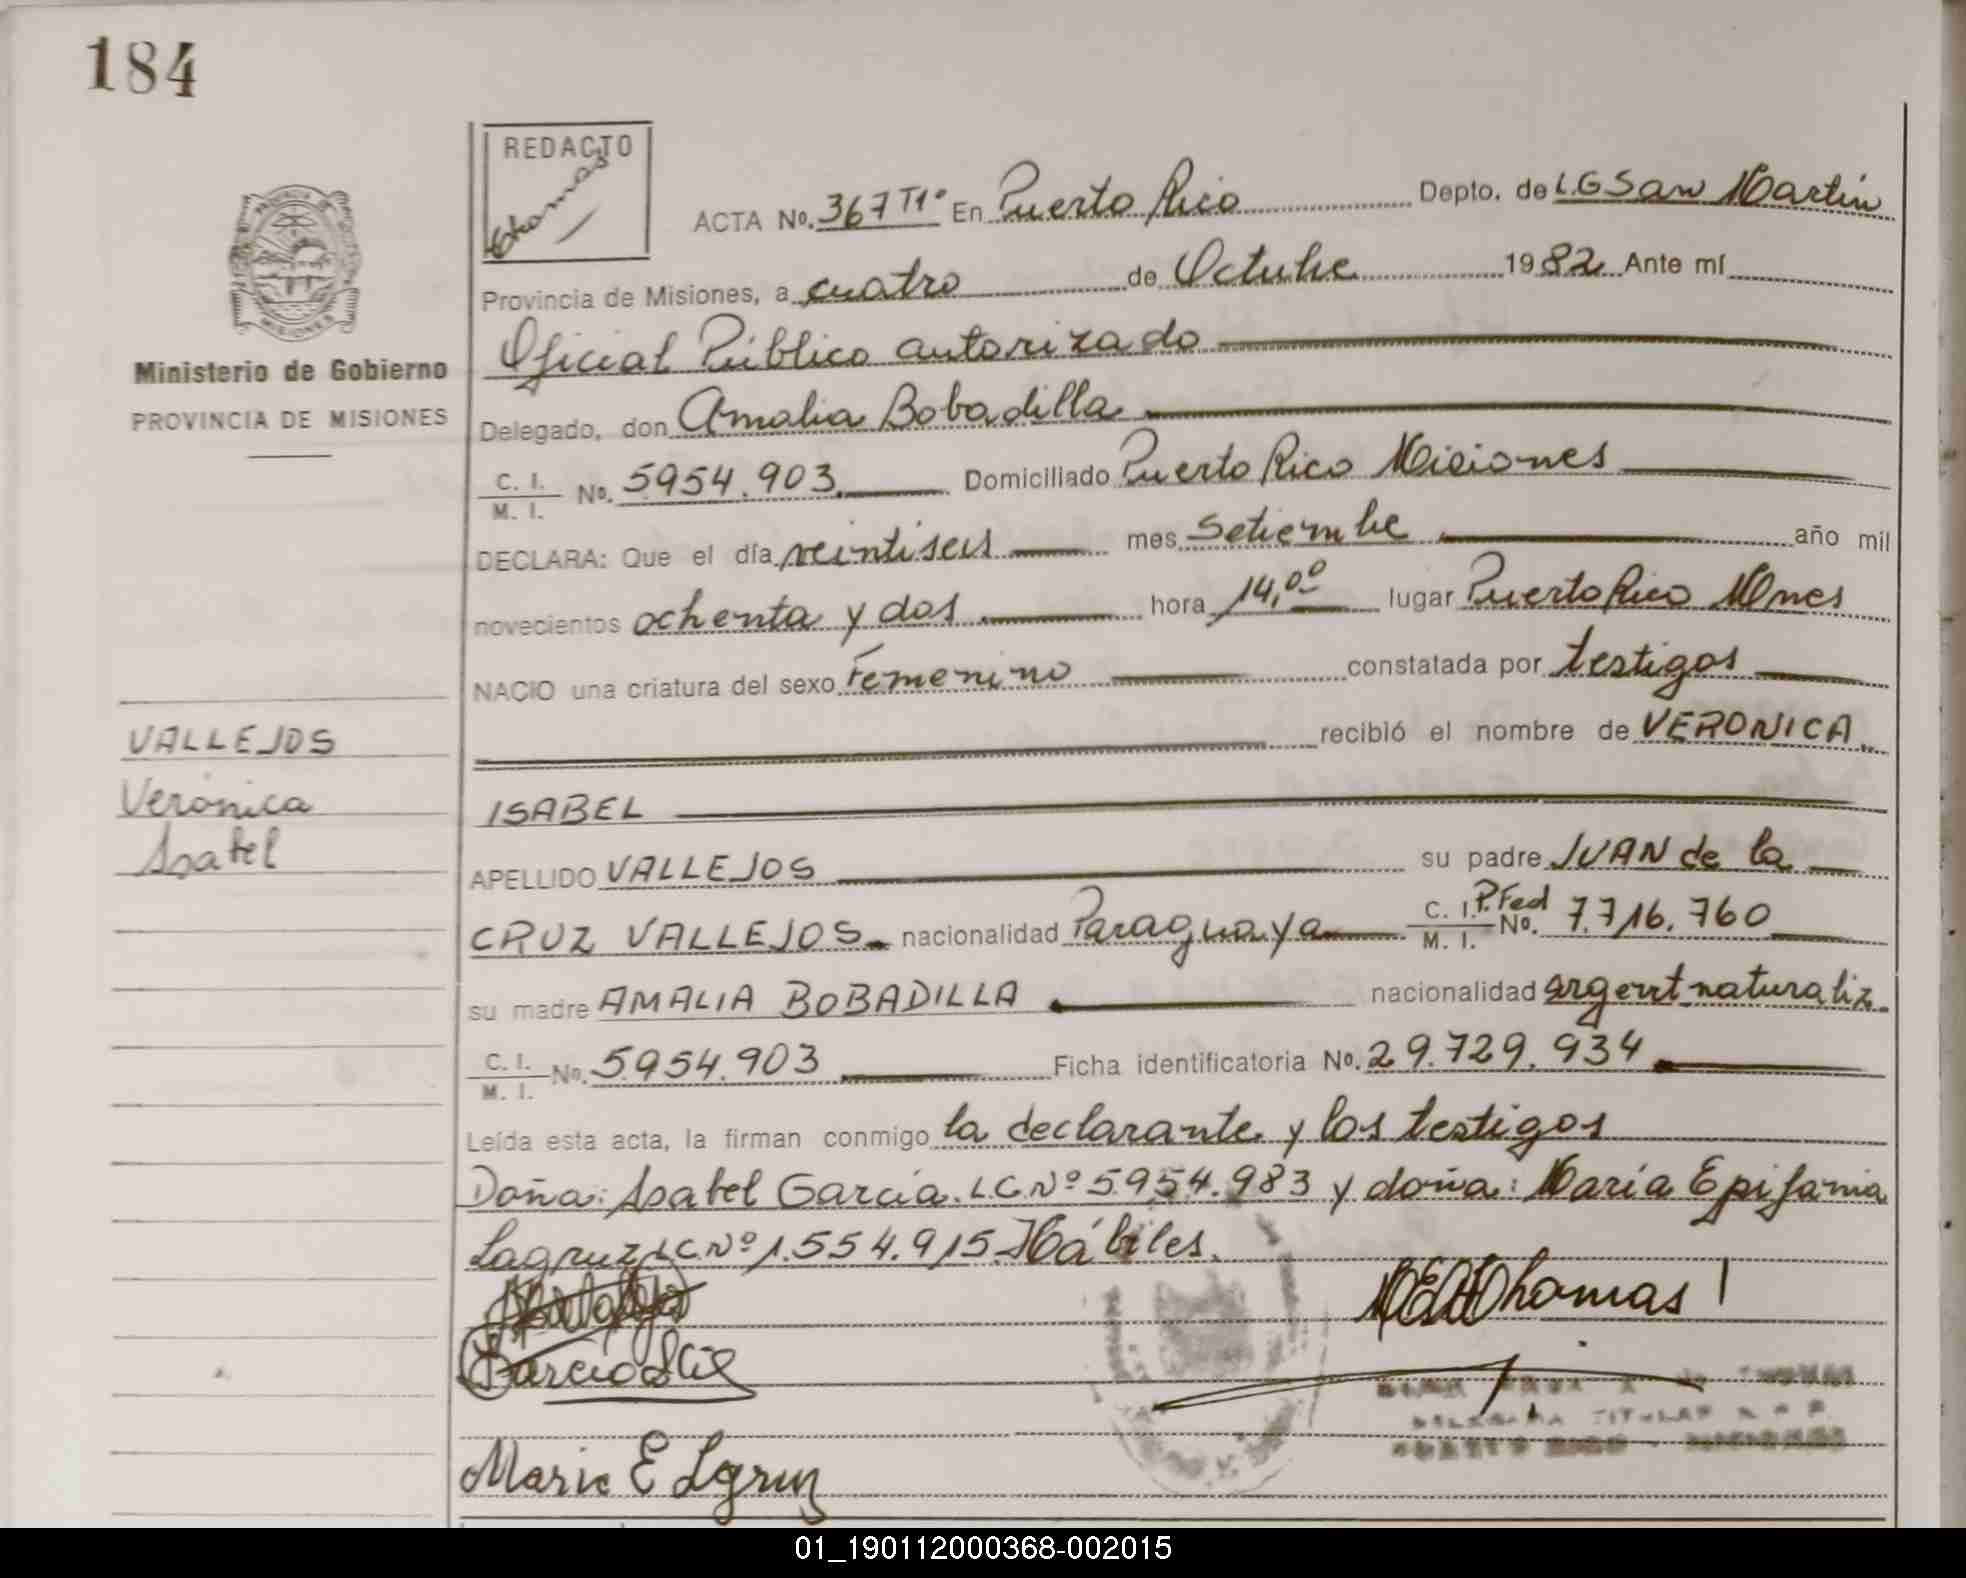 184
REDACTO
Thomas
ACTA No. 367 T1º En Puerto Rico Depto. de L.G San Martín
Provincia de Misiones, a cuatro de Octubre 1982 Ante mí
Oficial Público autorizado
Ministerio de Gobierno
PROVINCIA DE MISIONES
Delegado, don Amalia Bobadilla
C. I. M. I. No. 5954.903 Domiciliado Puerto Rico Misiones
DECLARA: Que el día veintiseis mes Setiembre año mil
novecientos ochenta y dos hora 14,00 lugar Puerto Rico Mnes
NACIO una criatura del sexo Femenino constatada por testigos
recibió el nombre de VERONICA
ISABEL
VALLEJOS
Verónica
Isabel
APELLIDO VALLEJOS su padre JUAN de la
CRUZ VALLEJOS nacionalidad Paraguaya C. I. P.Fed M. I. No. 7.716.760
su madre AMALIA BOBADILLA nacionalidad argent naturaliz.
C. I. M. I. No. 5954.903 Ficha identificatoria No. 29.729.934
Leída esta acta, la firman conmigo la declarante y los testigos
Doña: Isabel García. L.C.Nº 5954.983 y doña: María Epifania
Lagruz L.C.Nº 1.554.915. Hábiles.
Thomas
MISIONES
Marie E Lgruz
01_190112000368-002015